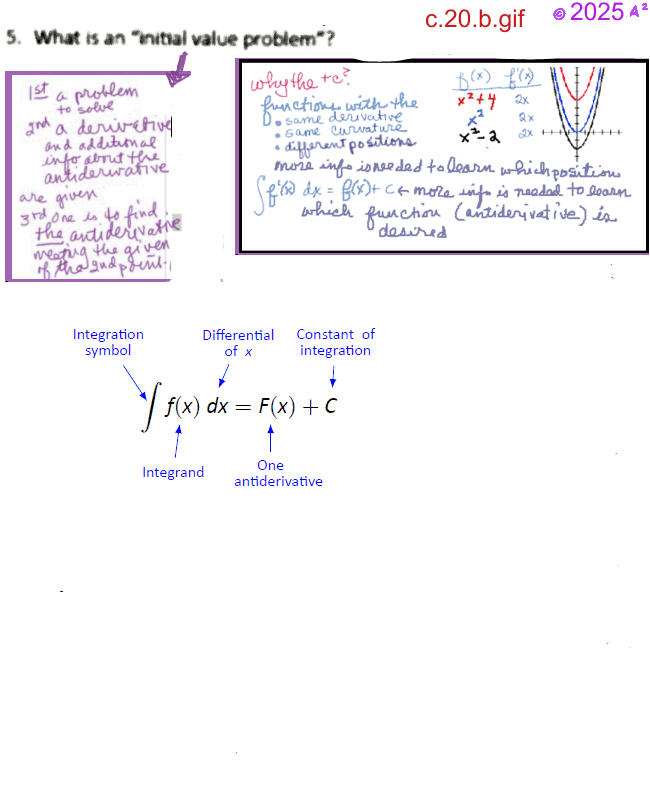 c.20.b.gif © 2025 A²
5. What is an "initial value problem"?
1st a problem
to solve
2nd a derivative
and additional
info about the
antiderivative
are given
3rd One is to find
the antiderivative
meeting the given
of the 2nd point.
why the +c?
functions with the
• same derivative
• same curvature
• different positions
f(x) f'(x)
x²+4 2x
x² 2x
x²-2 2x
more info is needed to learn which position
∫f'(x) dx = f(x)+ c ← more info is needed to learn
which function (antiderivative) is
desired
Integration
symbol
Differential
of x
Constant of
integration
∫ f(x) dx = F(x) + C
Integrand
One
antiderivative